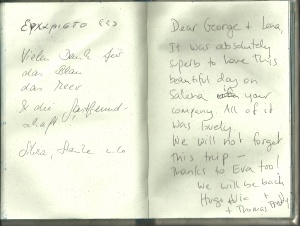 Vielen Dank für
das Blau
das Meer
& die Gastfreund-
schaft,
Dear George + Lena,
It was absolutely
superb to have this
beautiful day on
Salena in your
company. All of it
was lovely.
We will not forget
this trip –
thanks to Eva too!
We will be back
Hugo +
+ Thomas